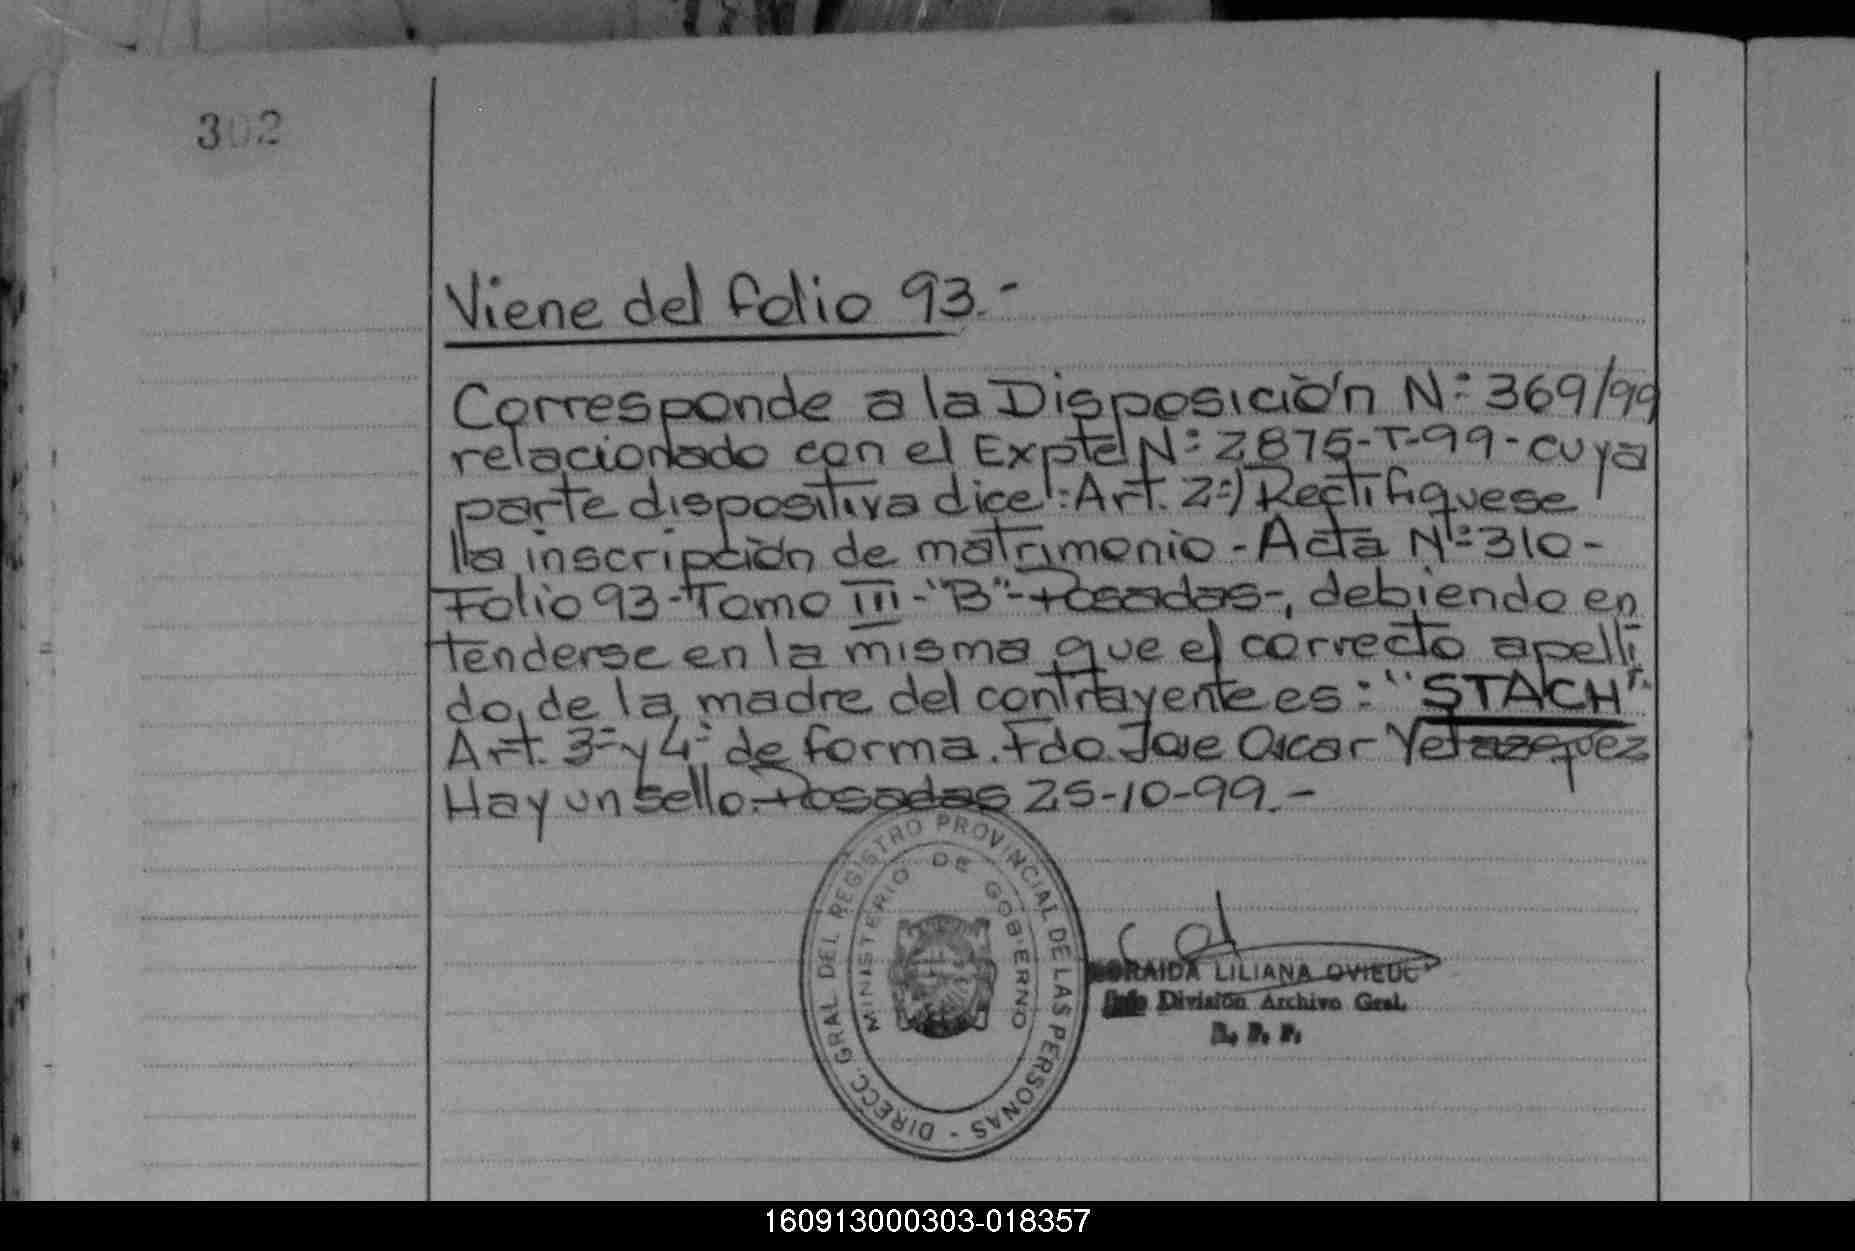 302
Viene del folio 93.-
Corresponde a la Disposición N:369/99
relacionado con el Expte N:2875-T-99-cuya
parte dispositiva dice: Art. 2º) Rectifiquese
la inscripción de matrimonio - Acta Nº 310-
Folio 93-Tomo III-"B"-Posadas-, debiendo en
tenderse en la misma que el correcto apelli
do, de la madre del contrayente es: "STACH".
Art. 3º y 4º de forma. Fdo. Jose Oscar Velazequez
Hay un sello. Posadas 25-10-99.-
DIRECC. GRAL DEL REGISTRO PROVINCIAL DE LAS PERSONAS -
MINISTERIO DE GOBIERNO
LILIANA OVIEDO
División Archivo Gral.
160913000303-018357